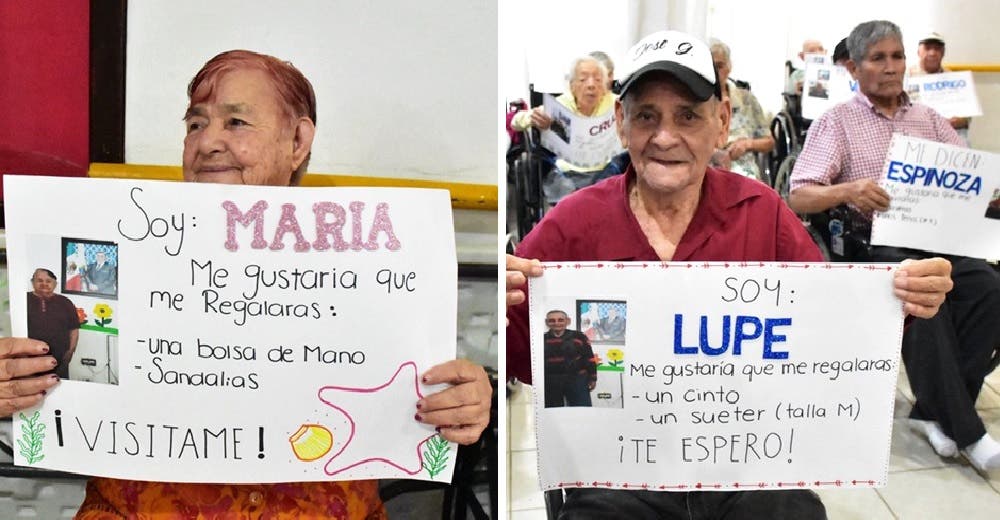 Soy: MARIA
Me gustaria que
me Regalaras:
-una bolsa de Mano
-Sandalias
¡VISITAME!
José G.
SOY:
LUPE
Me gustaría que me regalaras:
- un cinto
- un sueter (talla M)
¡TE ESPERO!
CRU
RODRIGO
MI DICEN:
ESPINOZA
Me gustaría que me